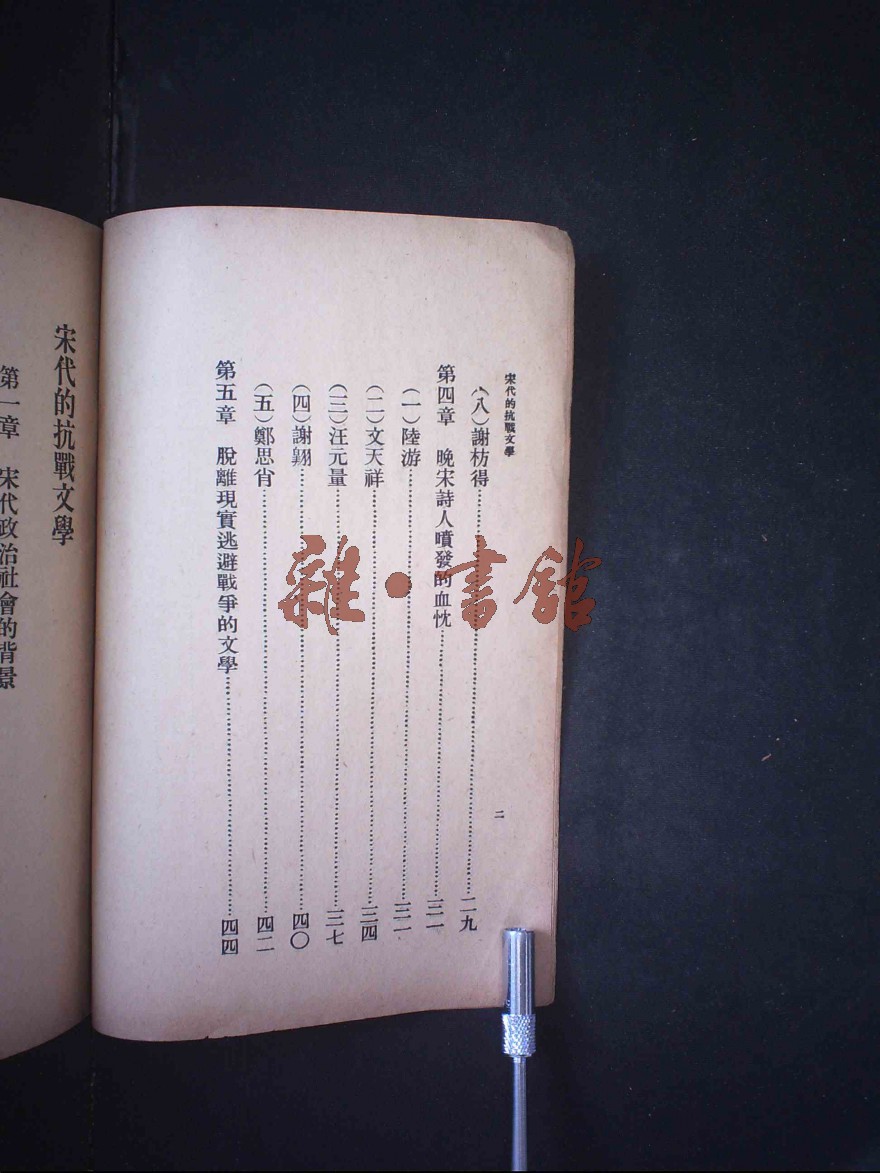 宋代的抗戰文學
二
(八)謝枋得……二九
第四章　晚宋詩人噴發的血忱……三一
(一)陸游……三一
(二)文天祥……三四
(三)汪元量……三七
(四)謝翱……四〇
(五)鄭思肖……四二
第五章　脫離現實逃避戰爭的文學……四四
宋代的抗戰文學
第一章　宋代政治社會的背景
雜·書館